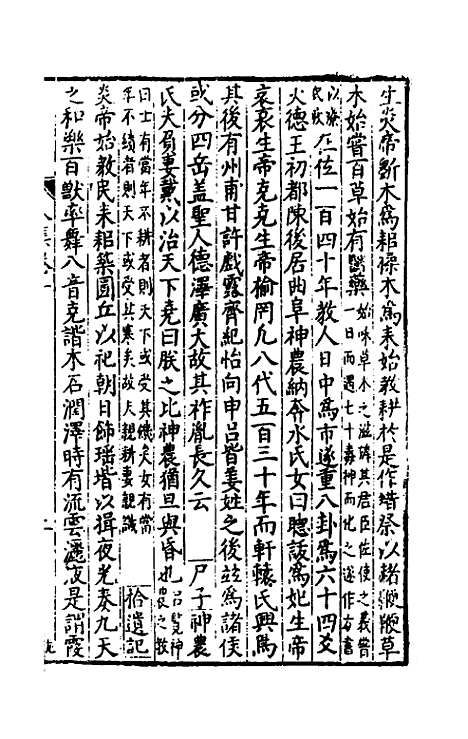 生炎帝斲木為耜揉木為耒始教耕於是作蜡祭以赭鞭鞭草
木始嘗百草始有醫藥
始味草木之滋辨其君臣佐使之義嘗
一日而遇七十毒神而化之遂作方書
以療
民疾
在位一百四十年教人日中為市遂重八卦為六十四爻
火德王初都陳後居曲阜神農納奔水氏女曰聴詙為妃生帝
哀哀生帝克克生帝榆罔凡八代五百三十年而軒轅氏興焉
其後有州甫甘許戲露齊紀怡向申呂皆姜姓之後竝為諸侯
或分四岳蓋聖人德澤廣大故其祚胤長久云　尸子神農
氏夫負妻戴以治天下堯曰朕之比神農猶旦與昏也
呂覽神
農之教
曰士有當年不耕者則天下或受其飢矣女有當
年不績者則天下或受其寒矣故夫親耕妻親織
拾遺記
炎帝始教民耒耜築圓丘以祀朝日飾瑤堦以揖夜光奏九天
之和樂百獸率舞八音克諧木石潤澤時有流雲灑液是謂霞